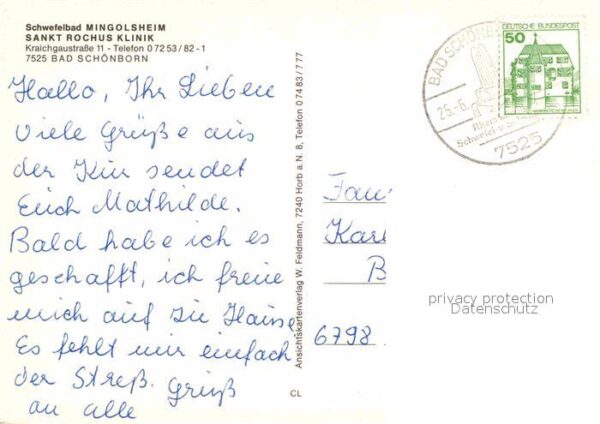 Schwefelbad MINGOLSHEIM
SANKT ROCHUS KLINIK
Kraichgaustraße 11 - Telefon 0 72 53 / 82 - 1
7525 BAD SCHÖNBORN
Hallo, Ihr Lieben
Viele Grüße aus
der Kur sendet
Euch Mathilde.
Bald habe ich es
geschafft, ich freue
mich auf zu Hause
Es fehlt mir einfach
der Streß. Gruß
an alle
Ansichtskartenverlag W. Feldmann, 7240 Horb a. N. 8, Telefon 0 74 83 / 777
CL
BAD SCHÖNB
25.-6.
7525
DEUTSCHE BUNDESPOST
50
Fam
Karl
B
6798
privacy protection
Datenschutz